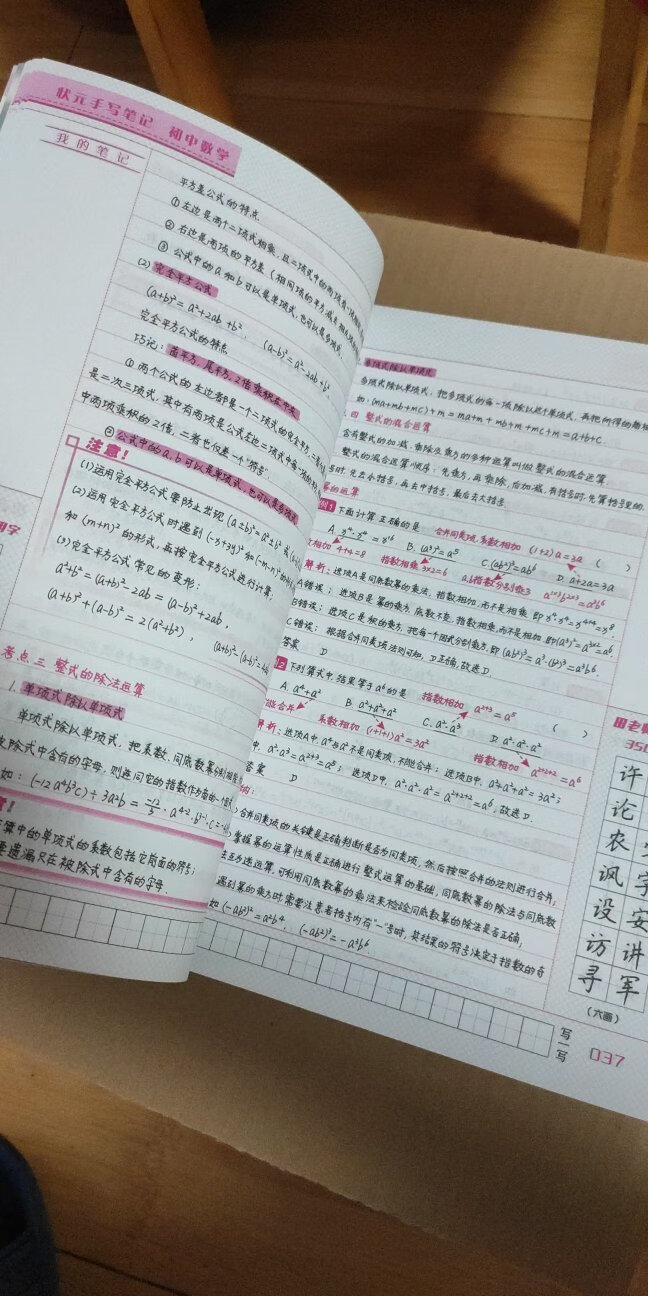 状元手写笔记 初中数学
我的笔记
平方差公式的特点
①左边是两个二项式相乘,且二项式中的两项有一项相同
②右边是两项的平方差(相同项的平方减去
③公式中的a和b可以是单项式,也可以是多项式.
(2)完全平方公式
(a+b)²=a²+2ab+b², (a-b)²=a²-2ab+b²
完全平方公式的特点
巧记:首平方,尾平方,2倍乘积在中央
①两个公式的左边都是一个二项式的完全平方,二
是二次三项式,其中有两项是公式左边二项式中每一项的
中两项乘积的2倍,二者也仅差一个"符号".
②公式中的a,b可以是单项式,也可以是多项式
注意!
(1)运用完全平方公式要防止出现(a±b)²=a²±b²
(2)运用完全平方公式时遇到(-x+3y)²和(-m-n)²
和(m+n)²的形式,再按完全平方公式进行计算;
(3)完全平方公式常见的变形:
a²+b²=(a+b)²-2ab=(a-b)²+2ab,
(a+b)²+(a-b)²=2(a²+b²), (a+b)²-(a-b)²=4ab
考点三 整式的除法运算
1.单项式除以单项式
单项式除以单项式,把系数、同底数幂分别相除
被除式中含有的字母,则连同它的指数作为商的一个因式
如:(-12a⁴b³c)÷3a²b=-12/3·a⁴⁻²·b³⁻¹·c=
中的单项式的系数包括它前面的符号;
遗漏只在被除式中含有的字母
多项式除以单项式
多项式除以单项式,把多项式的每一项除以这个单项式,再把所得的商相
如:(ma+mb+mc)÷m=ma÷m+mb÷m+mc÷m=a+b+c.
四 整式的混合运算
含有整式的加减、乘除及乘方的多种运算叫做整式的混合运算.
整式的混合运算顺序:先乘方,再乘除,后加减,有括号时,先算括号里的.
号时,先去小括号,再去中括号,最后去大括号.
幂的运算
例1 下面计算正确的是 合并同类项,系数相加 (1+2)a=3a ( )
A.x⁴·x⁴=x¹⁶ B.(a³)²=a⁵ C.(ab²)³=ab⁶ D.a+2a=3a
数相加 4+4=8 指数相乘 3×2=6 a,b指数分别乘3 a¹ˣ³b²ˣ³=a³b⁶
解析:选项A是同底数幂的乘法,指数相加,而不是相乘,即x⁴·x⁴=x⁴⁺⁴=x⁸,
A错误;选项B是幂的乘方,底数不变,指数相乘,而不是相加,即(a³)²=a³ˣ²=a⁶,
B错误;选项C是积的乘方,把每一个因式分别乘方,即(ab²)³=a³·(b²)³=a³b⁶,
C错误;根据合并同类项法则可知,D正确,故选D.
答案 D
例2 下列算式中,结果等于a⁶的是 指数相加 a²⁺³=a⁵ ( )
A.a⁴+a² B.a²+a²+a² C.a²·a³ D.a²·a²·a²
能合并 系数相加 (1+1+1)a²=3a² 指数相加 a²⁺²⁺²=a⁶
解析:选项A中,a⁴与a²不是同类项,不能合并;选项B中,a²+a²+a²=3a²;
中,a²·a³=a²⁺³=a⁵;选项D中,a²·a²·a²=a²⁺²⁺²=a⁶,故选D.
答案 D
纳:
合并同类项的关键是正确判断是否为同类项,然后按照合并的法则进行合并;
掌握幂的运算性质是正确进行整式运算的基础,同底数幂的除法与同底数
法互为逆运算,可利用同底数幂的乘法来检验同底数幂的除法是否正确;
遇到幂的乘方时,需要注意若括号内有"-"号时,其结果的符号决定于指数的奇
如(-ab²)²=a²b⁴, (-ab²)³=-a³b⁶.
田老师
350
许
论
农
讽 字
设 安
访 讲
寻 军
(六画)
写一写
037